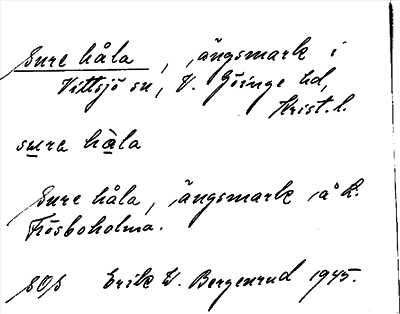 Sure håla, ängsmark i
Vittsjö sn, V. Göinge hd,
Krist. l.
sure håla
Sure håla, ängsmark å R.
Frösboholma.
SOS Erik W. Bergenrud 1945.